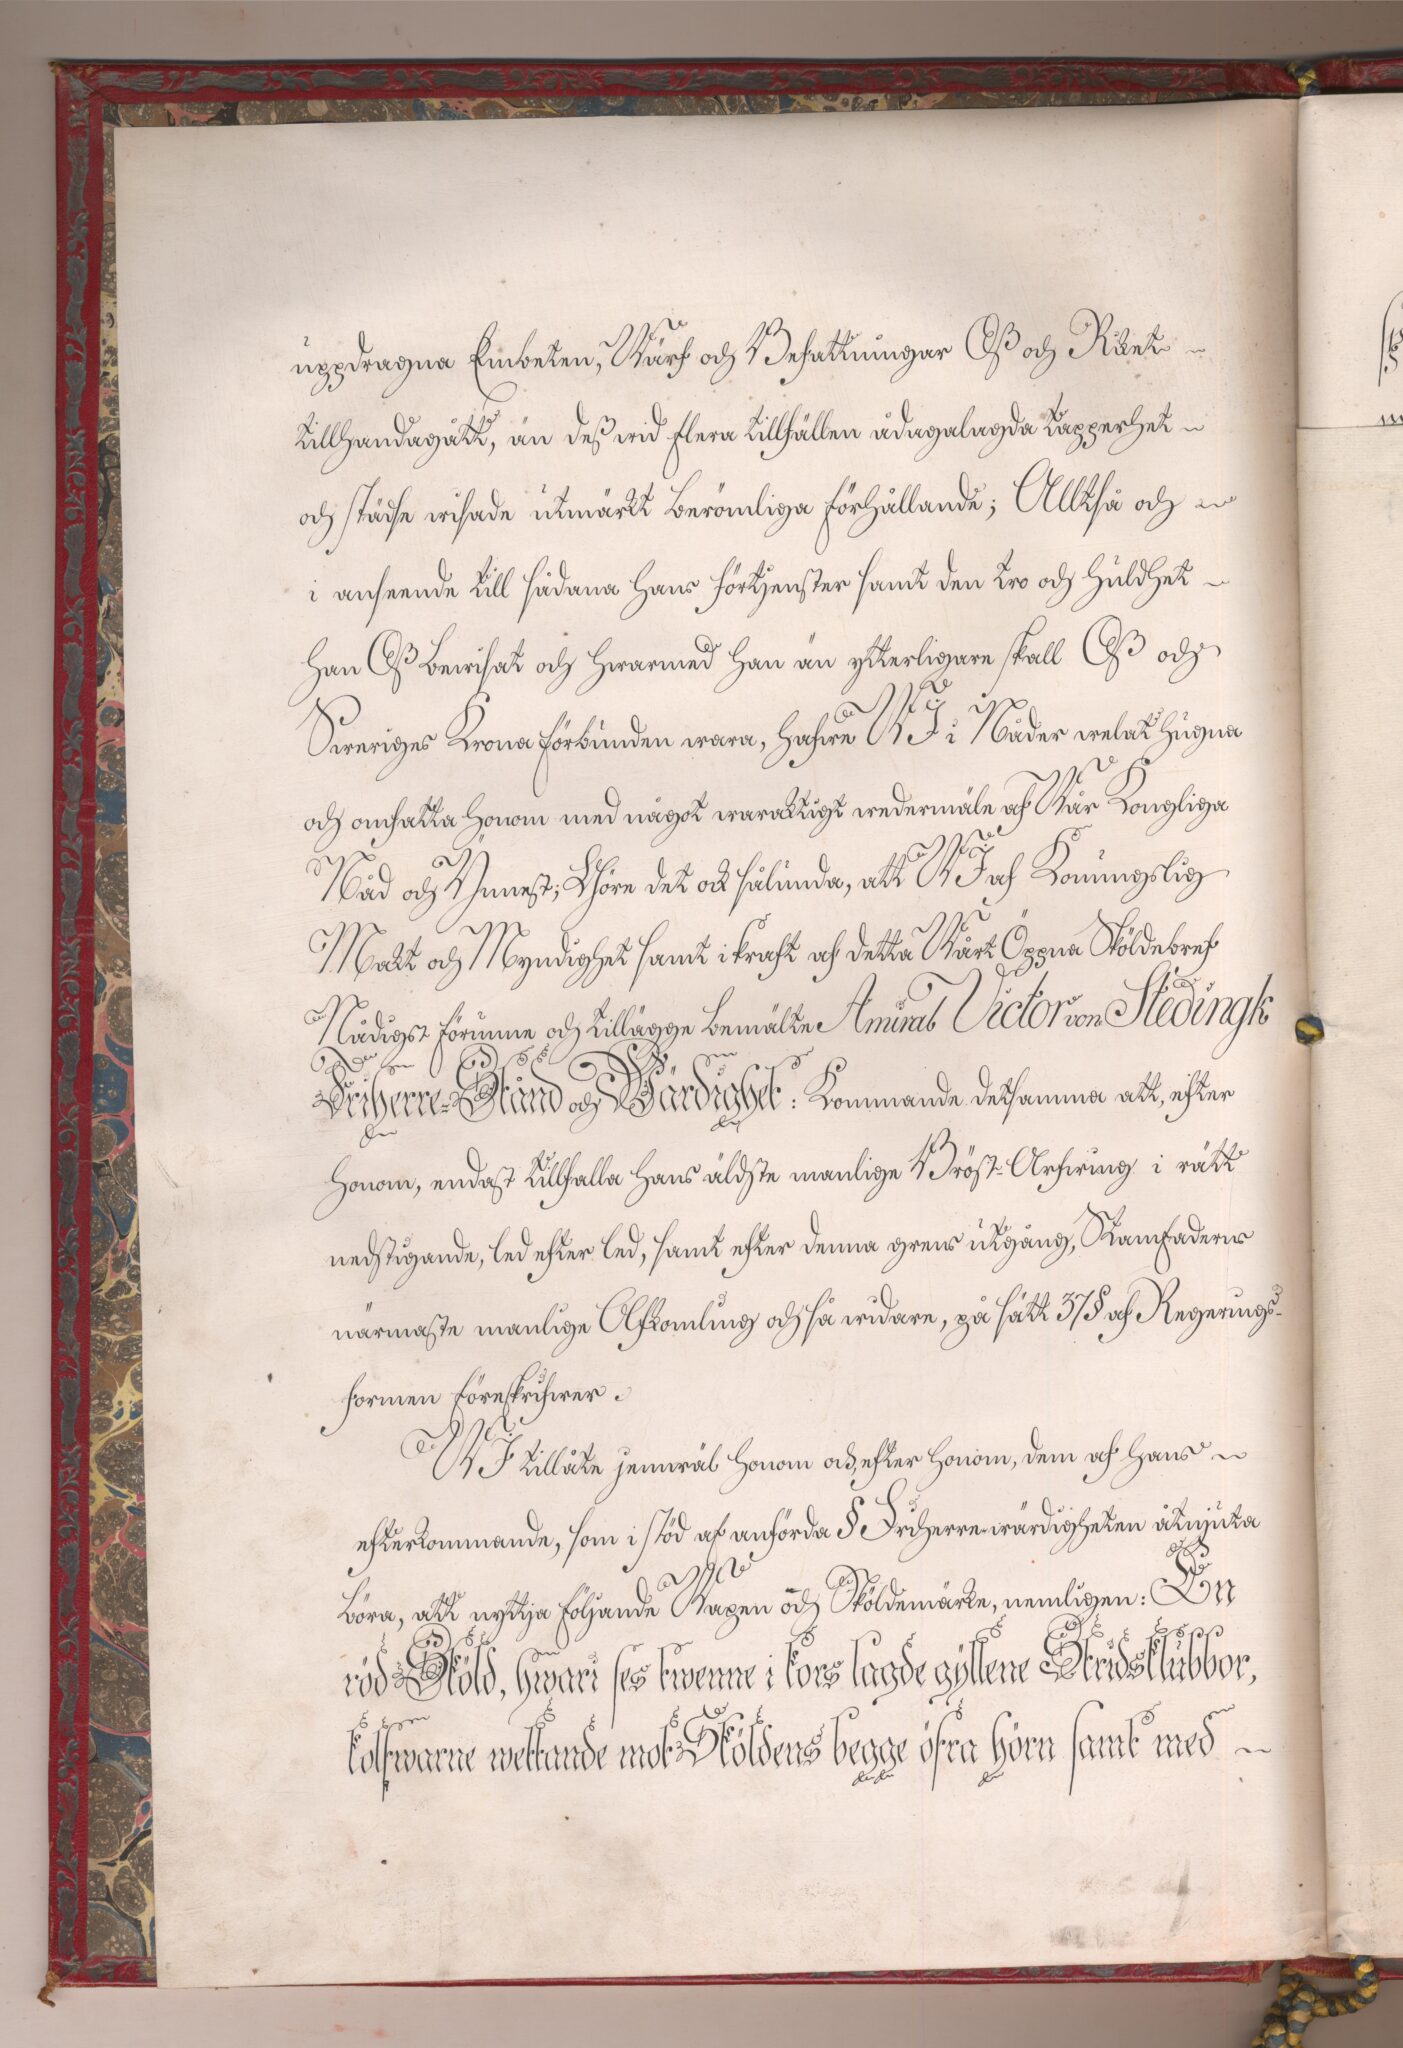 uppdragna Embeten, Wärf och Befattningar Oß och Riket
tillhandagått, än deß wid flera tillfällen ådagalagda tapperhet
och städse wisade utmärkt berömliga förhållande; Alltså och
i anseende till sådana Hans förtjenster samt den tro och huldhet
Han Oß bewisat och hwarmed Han än ytterligare skall Oß och
Sweriges Krona förbunden wara, hafwe WJ i Nåder welat hugna
och omfatta Honom med något waraktigt wedermäle af Wår Kongliga
Nåd och Ynnest; Thöre det ock sålunda, att WJ af Konungslig
Makt och Myndighet samt i kraft af detta Wårt Öppna Sköldebref
Nådigst förunne och tillägge bemälte Amiral Victor von Stedingk
Friherre-Stånd och Wärdighet: Kommande detsamma att, efter
Honom, endast tillfalla Hans äldste manlige Bröst-Arfwing i rätt
nedstigande, led efter led, samt efter denna grens utgång, Stamfaderns
närmaste manlige Afkomling och så widare, på sätt 37 § af Regerings-
formen föreskrifwer.
WJ tillåte jemwäl Honom och, efter Honom, dem af Hans
efterkommande, som i stöd af anförda § Friherre-wärdigheten åtnjuta
böra, att nyttja följande Wapen och Sköldemärke, nemligen: En
röd Sköld, hwari ses twenne i kors lagde gyllene Stridsklubbor,
kolfwarne wettande mot Sköldens begge öfra hörn samt med